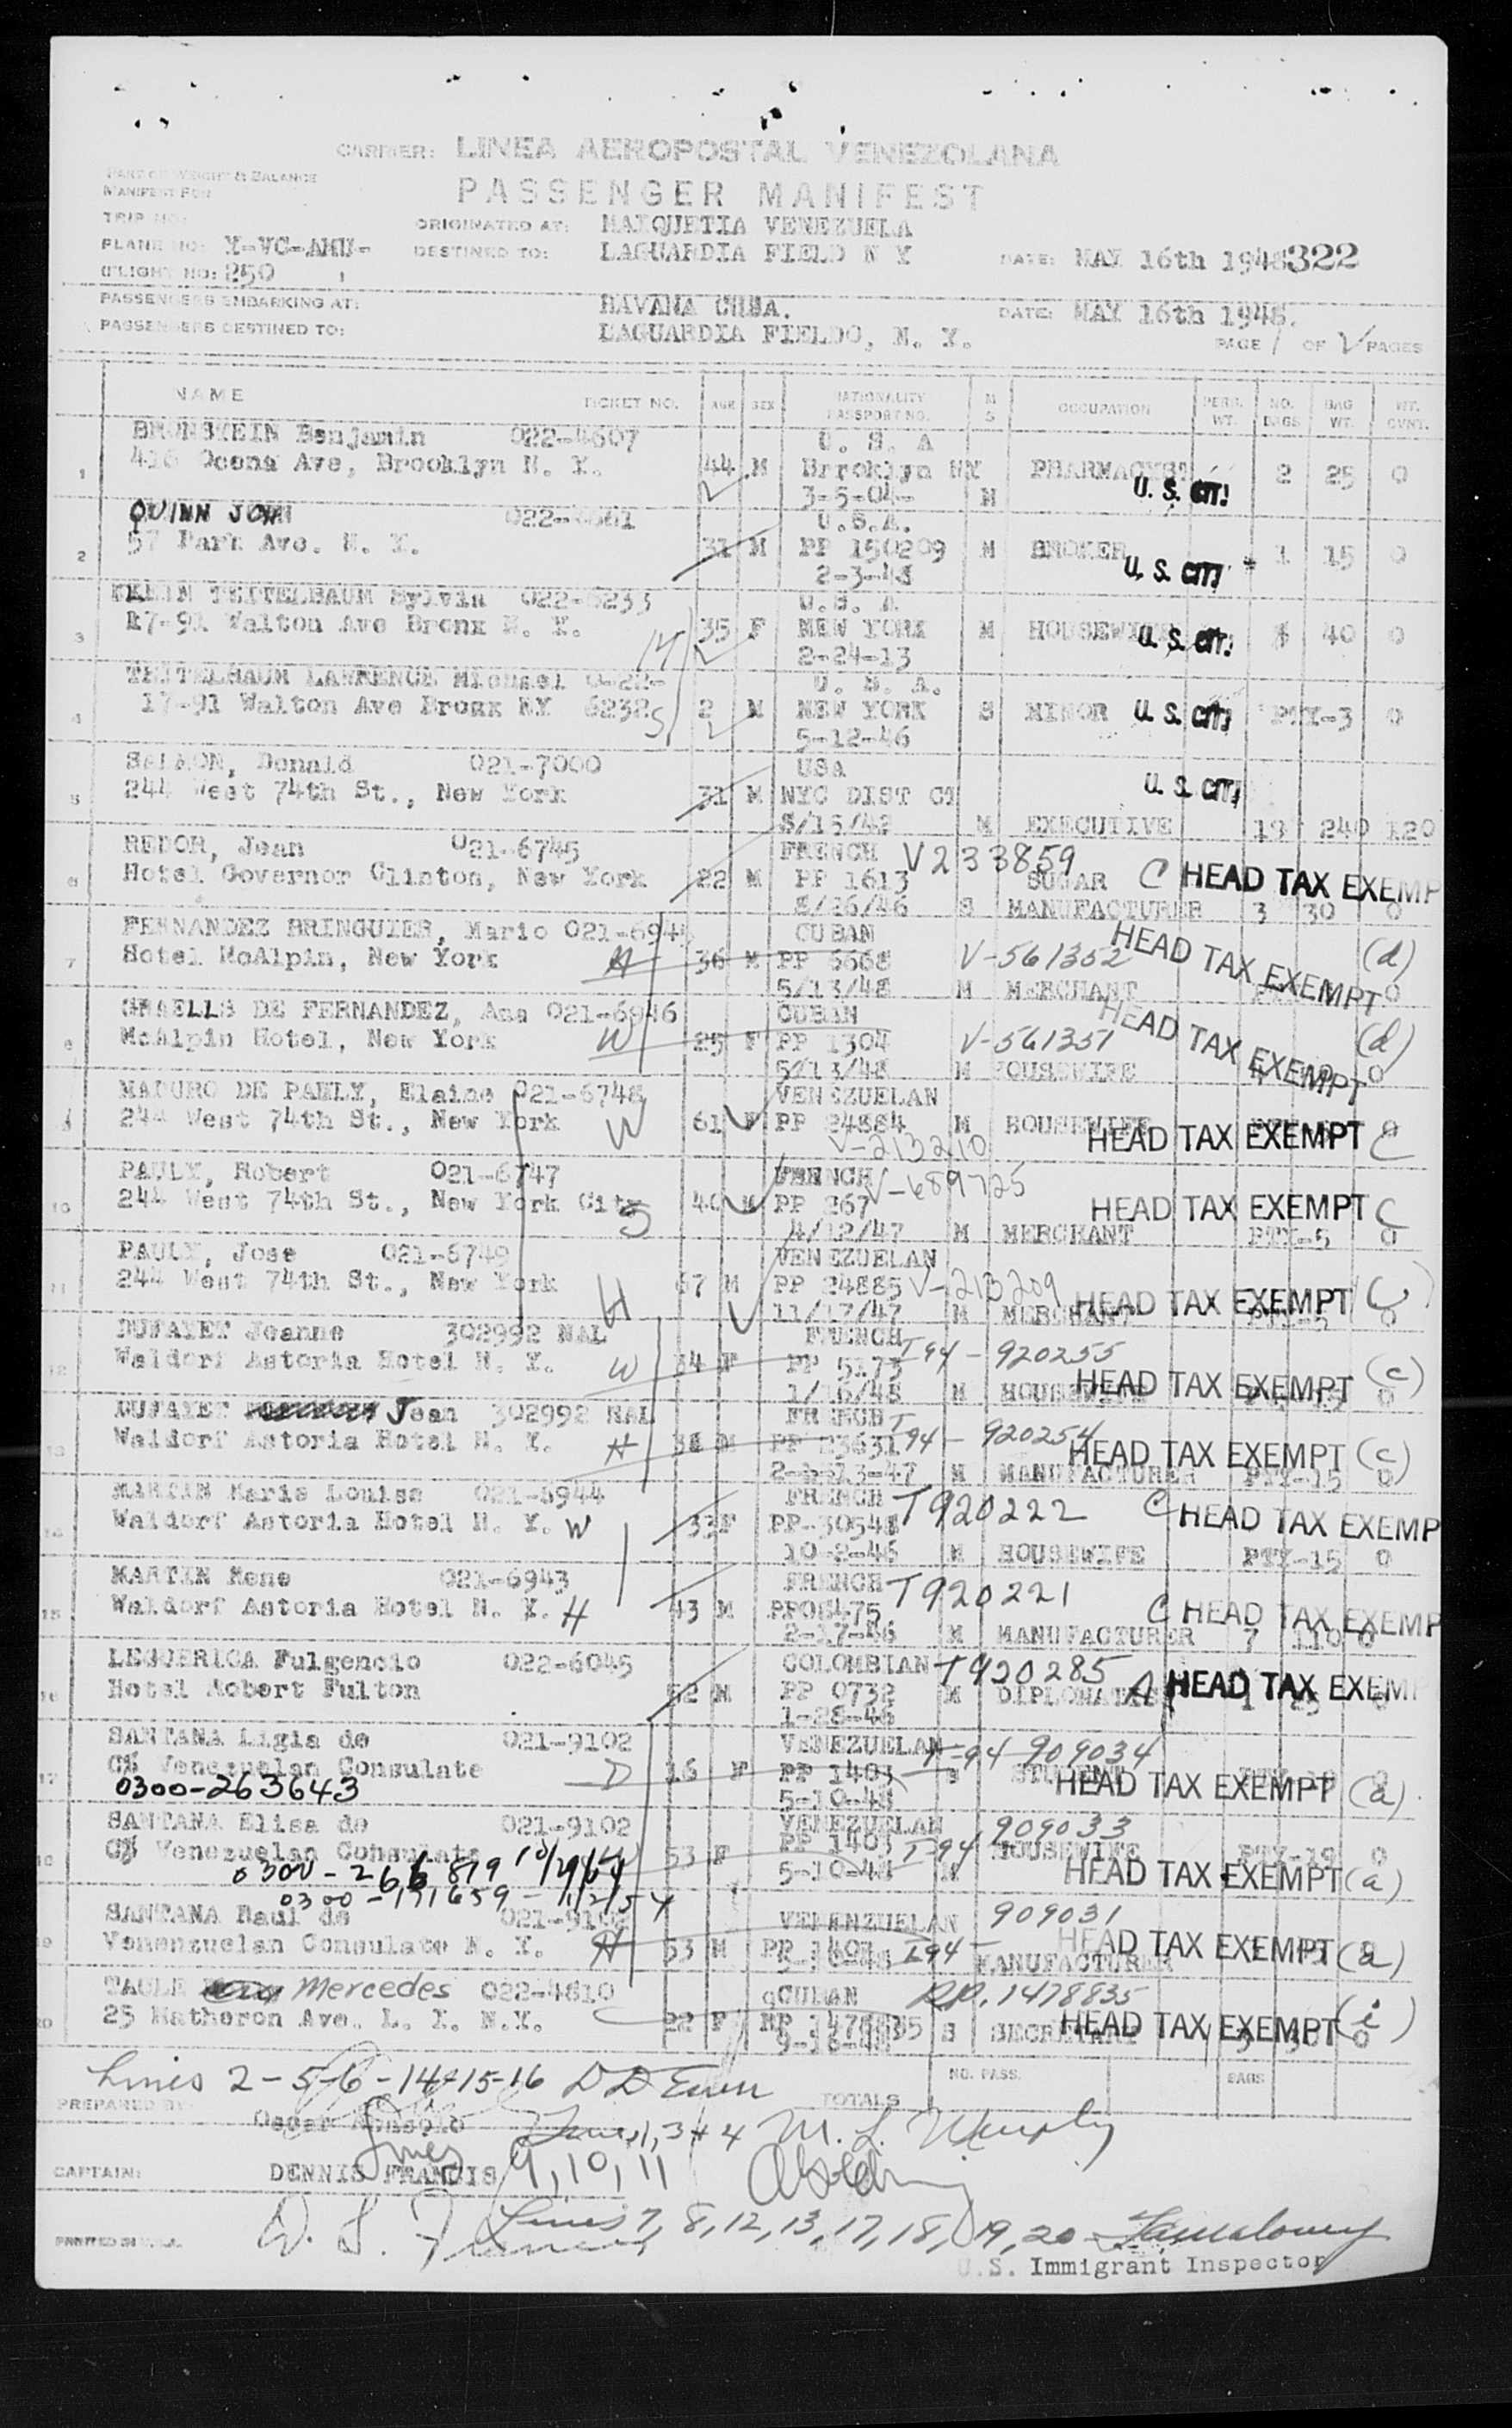 CARRIER: LINEA AEROPOSTAL VENEZOLANA
PART OF WEIGHT & BALANCE
MANIFEST FOR
PASSENGER MANIFEST
TRIP NO:
ORIGINATED AT: MAIQUETIA VENEZUELA
PLANE NO: Y-VC-AMU-
DESTINED TO: LAGUARDIA FIELD N Y
DATE: MAY 16th 1948 322
FLIGHT NO: 250
PASSENGERS EMBARKING AT: HAVANA CUBA.
DATE: MAY 16th 1948.
PASSENGERS DESTINED TO: LAGUARDIA FIELDO, N. Y.
PAGE 1 OF PAGES
NAME TICKET NO. AGE SEX NATIONALITY PASSPORT NO. M S OCCUPATION PERS. WT. NO. BAGS BAG WT. WT. OVWT.
BRONSTEIN Benjamin 022-4607 U. S. A
1 416 Ocena Ave, Brooklyn N. Y. 44 M Brroklyn NY PHARMACYST 2 25 0
3-5-04- M U. S. CIT.
QUINN JOHN 022- U.S.A.
2 57 Park Ave. N. Y. 31 M PP 150209 M BROKER 1 15 0
2-3-48 U. S. CIT.
TEITELBAUM Sylvia 022-6233 U.S. A
3 17-91 Walton Ave Bronx N. Y. 35 F NEW YORK M HOUSEWIFE U. S. CIT. 40 0
2-24-13
TEITELBAUM LAWRENCE Michael 0-22- U. S. A.
4 17-91 Walton Ave Bronx NY 6232 2 M NEW YORK S MINOR U. S. CIT. PTY-3 0
5-12-46
SALMON, Donald 021-7000 USA
5 244 West 74th St., New York 31 M NYC DIST CT U. S. CIT.
8/15/42 M EXECUTIVE 19 240 120
REDOR, Jean 021-6745 FRENCH V233859
6 Hotel Governor Clinton, New York 22 M PP 1613 SUGAR C HEAD TAX EXEMP
8/26/46 S MANUFACTURER 3 30 0
FERNANDEZ BRINGUIER, Mario 021-694 CUBAN
7 Hotel McAlpin, New York H 36 M PP 5668 V-561352 HEAD TAX EXEMPT (d)
5/13/48 M MERCHANT 0
GRAELLS DE FERNANDEZ, Ana 021-6946 CUBAN
8 McAlpin Hotel, New York W 25 F PP 1304 V-561351 HEAD TAX EXEMPT (d)
5/13/48 M HOUSEWIFE 0
MADURO DE PAULY, Elaine 021-6748 VENEZUELAN
9 244 West 74th St., New York W 61 F PP 24884 M HOUSEWIFE 0
V-213210 HEAD TAX EXEMPT C
PAULY, Robert 021-6747 FRENCH V-689725
10 244 West 74th St., New York City S 40 M PP 267 HEAD TAX EXEMPT C
4/12/47 M MERCHANT PTY-5 0
PAULY, Jose 021-6749 VENEZUELAN
11 244 West 74th St., New York H 67 M PP 24885 V-213209 HEAD TAX EXEMPT C
11/17/47 M MERCHANT PTY-5 0
DUFAYET Jeanne 302992 NAL FRENCH T94-920255
12 Waldorf Astoria Hotel N. Y. W 34 F PP 5173 HEAD TAX EXEMPT (c)
1/16/48 M HOUSEWIFE 0
DUFAYET Jean 302992 NAL FRENCH T94-920254
13 Waldorf Astoria Hotel N. Y. H 38 M PP 23631 HEAD TAX EXEMPT (c)
M MANUFACTURER PTY-15 0
MARTIN Marie Louise 021-6944 FRENCH T920222 C HEAD TAX EXEMP
14 Waldorf Astoria Hotel N. Y. W 33 F PP-30548
10-2-46 M HOUSEWIFE PTY-15 0
MARTIN Rene 021-6943 FRENCH T920221
15 Waldorf Astoria Hotel N. Y. H 43 M PP06475 C HEAD TAX EXEMP
2-17-48 M MANUFACTURER 7 110 0
LEQUERICA Fulgencio 022-6045 COLOMBIAN T920285
16 Hotel Robert Fulton 52 M PP 0732 M DIPLOMATIC A HEAD TAX EXEMP
1-28-48 1 25 0
SANTANA Ligia de 021-9102 VENEZUELAN T-94-909034
17 C% Venezuelan Consulate D 16 F PP 1403 S STUDENT HEAD TAX EXEMPT (a)
0300-263643 5-10-48
SANTANA Elisa de 021-9102 VENEZUELAN 909033
18 C% Venezuelan Consulate W 53 F PP 1403 T-94 HOUSEWIFE PTY-19 0
0300-266819 5-10-48 M HEAD TAX EXEMPT (a)
0300-191659-1/2/54
SANTANA Raul de 021-9102 VENENZUELAN 909031
19 Venenzuelan Consulate N. Y. H 53 M PP 1401 T94- HEAD TAX EXEMPT (a)
MANUFACTURER
TAULE Mercedes 022-4810 CUBAN R.P. 1478835
20 25 Matheron Ave. L. I. N.Y. 22 F RP 1478835 S SECRETARY HEAD TAX EXEMPT (i) 0
9-18-48
Lines 2-5-6-14+15-16
TOTALS NO. PASS. BAGS
PREPARED BY:
Oscar
Lines 1, 3+4 M. L. Murphy
CAPTAIN: DENNIS FRANCIS
Lines 9, 10, 11
Lines 7, 8, 12, 13, 17, 18, 19, 20
PRINTED IN U.S.A.
U.S. Immigrant Inspector